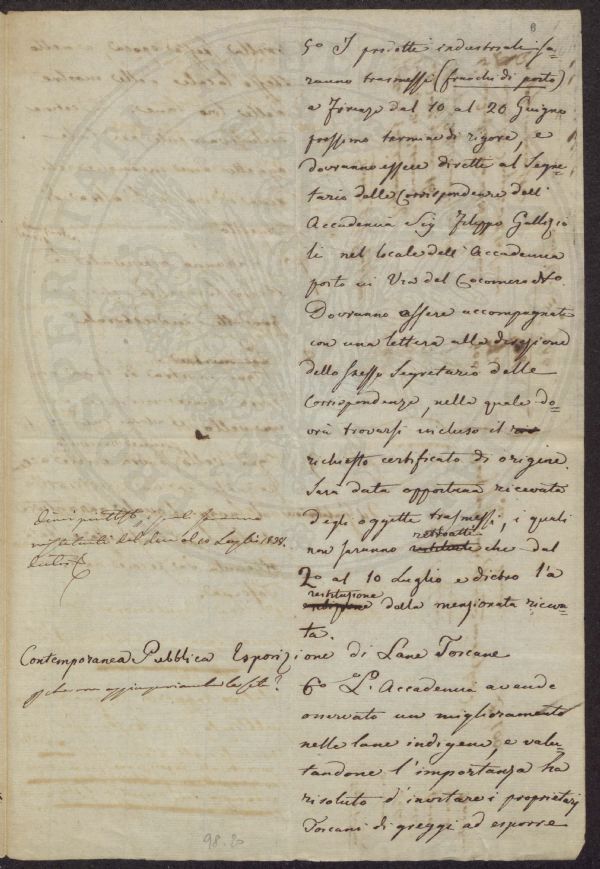 6
5.o I prodotti industriali sa-
ranno trasmessi (franchi di porto)
a Firenze dal 10 al 20 Giugno
prossimo termine di rigore, e
dovranno essere diretti al Segre-
tario delle Corrispondenze dell'
Accademia Sig Filippo Gallizio
li nel locale dell'Accademia
posto in Via del Cocomero
Dovranno essere accompagnati
con una lettera alla direzione
dello stesso Segretario delle
Corrispondenze, nella quale do-
vrà trovarsi incluso il
richiesto certificato di origine.
Sarà data opportuna ricevuta
degli oggetti trasmessi, i quali
non saranno restituiti che dal
2.o al 10 Luglio e dietro l'a
restituzione
della menzionata ricevu-
ta.
restituiti dal dì al 10 Luglio 1838.
Contemporanea Pubblica Esposizione di Lane Toscane
6.o L'Accademia avendo
osservato un miglioramento
nelle lane indigene, e valu-
tandone l'importanza ha
risoluto d'invitare i proprietarj
Toscani di greggi ad esporre
98.20